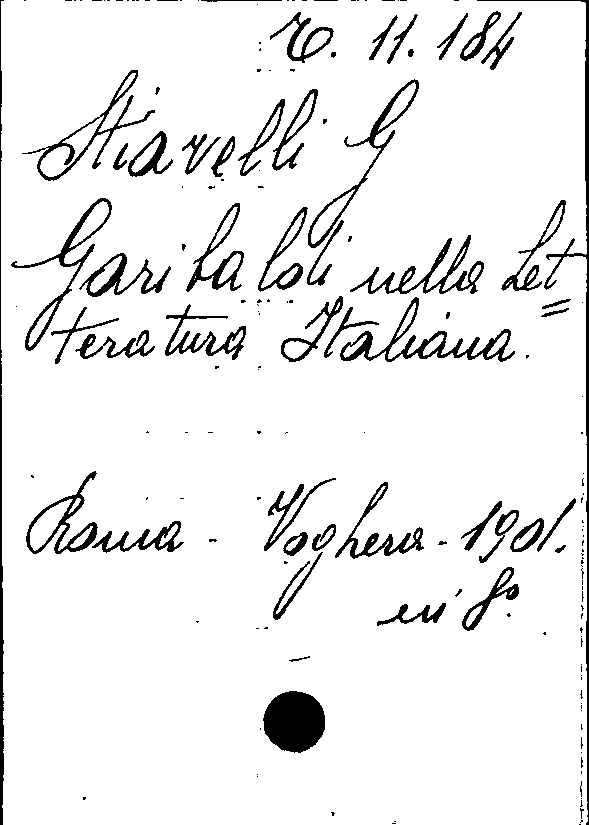 G. 11. 184
Stiavelli G
Garibaldi nella Let=
teratura Italiana.
Roma - Voghera - 1901.
in 8°.